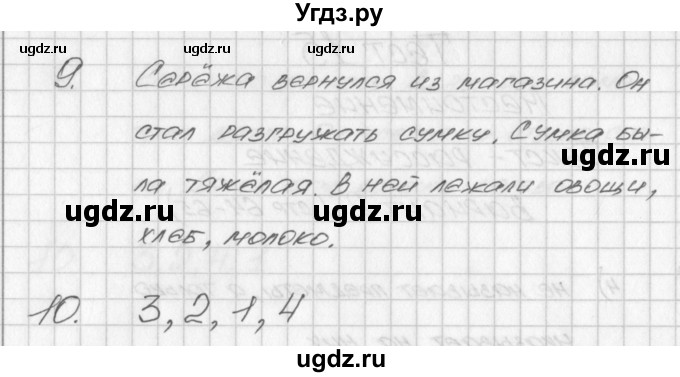 Угдз.ру
9. Серёжа вернулся из магазина. Он
стал разгружать сумку. Сумка бы-
ла тяжёлая. В ней лежали овощи,
хлеб, молоко.
10. 3, 2, 1, 4
ugdz.ru ugdz.ru ugdz.ru ugdz.ru
ugdz.ru
ugdz.ru ugdz.ru
ugdz.ru
ugdz.ru
ugdz.ru